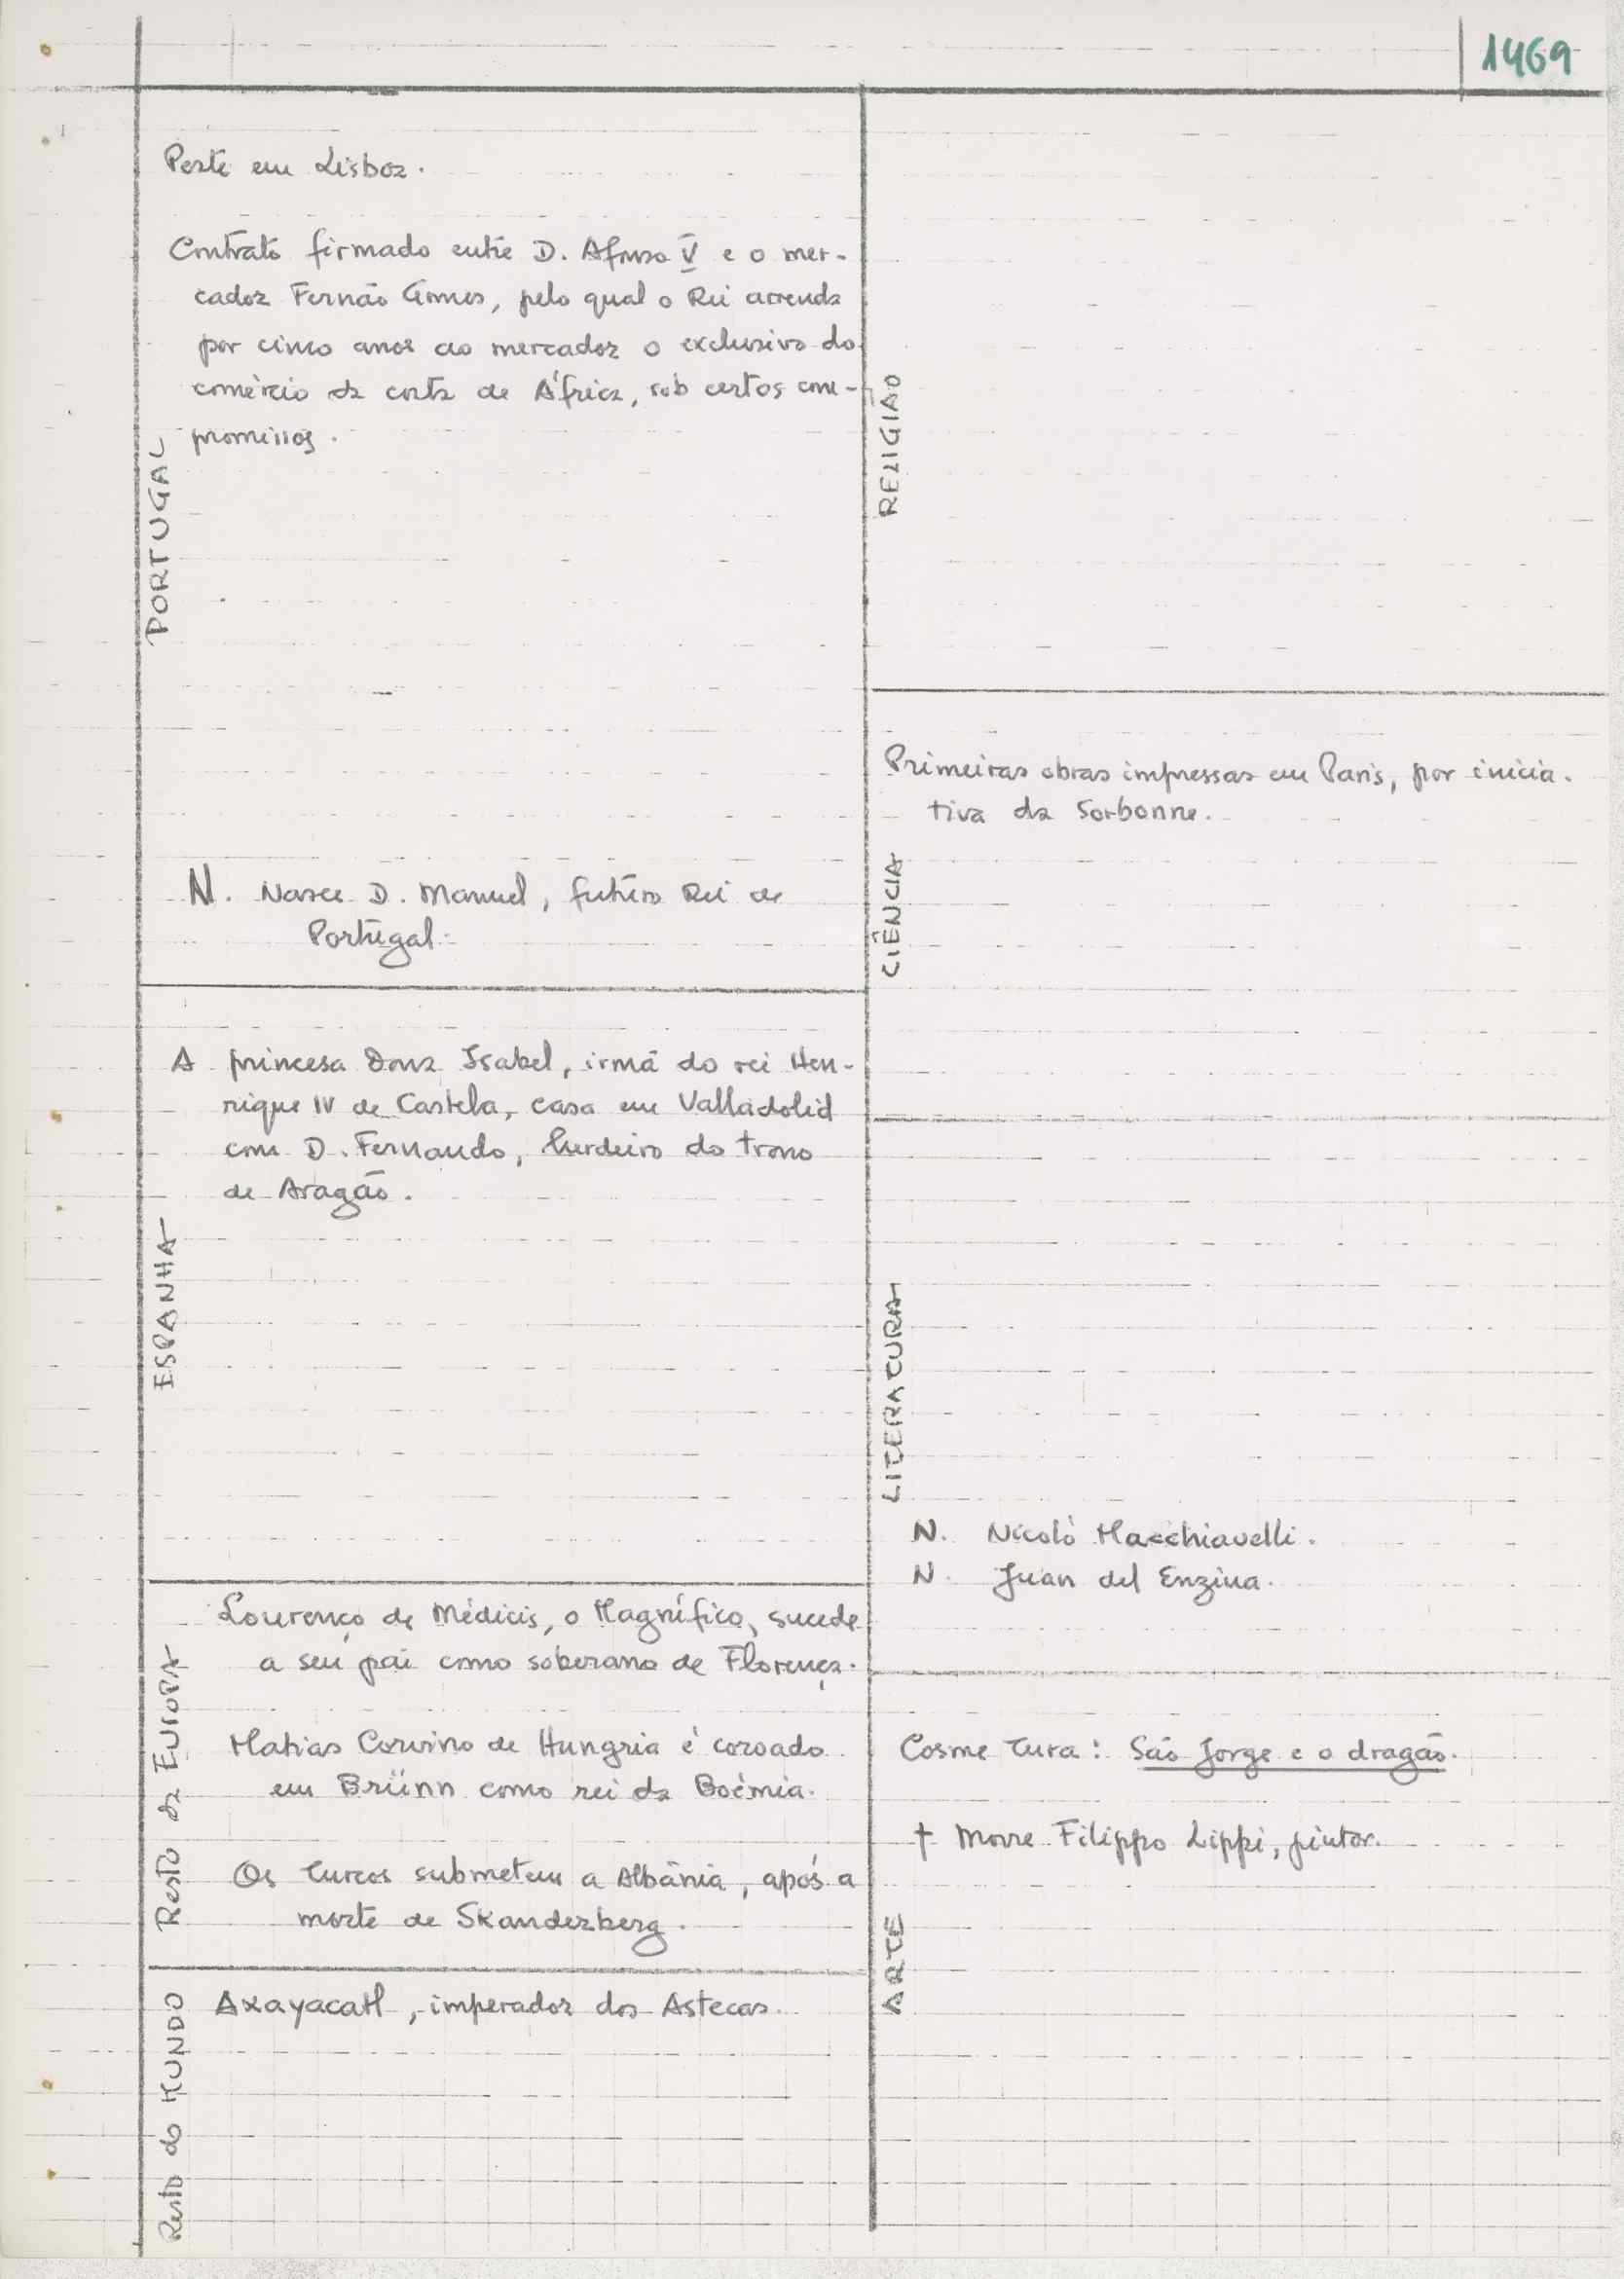 1469
PORTUGAL
Peste em Lisboa.
Contrato firmado entre D. Afonso V e o mer-
cador Fernão Gomes, pelo qual o Rei arrenda
por cinco anos ao mercador o exclusivo do
comércio da costa de África, sob certos com-
promissos.
N. Nasce D. Manuel, futuro Rei de
Portugal.
ESPANHA
A princesa Dona Isabel, irmã do rei Hen-
rique IV de Castela, casa em Valladolid
com D. Fernando, herdeiro do trono
de Aragão.
Resto da EUROPA
Lourenço de Médicis, o Magnífico, sucede
a seu pai como soberano de Florença.
Matias Corvino de Hungria é coroado
em Brünn como rei da Boémia.
Os Turcos submetem a Albânia, após a
morte de Skanderberg.
Resto do MUNDO
Axayacatl, imperador dos Astecas.
RELIGIÃO
CIÊNCIA
Primeiras obras impressas em Paris, por inicia-
tiva da Sorbonne.
LITERATURA
N. Nicolò Macchiavelli.
N. Juan del Enzina.
ARTE
Cosme Tura: São Jorge e o dragão.
† Morre Filippo Lippi, pintor.